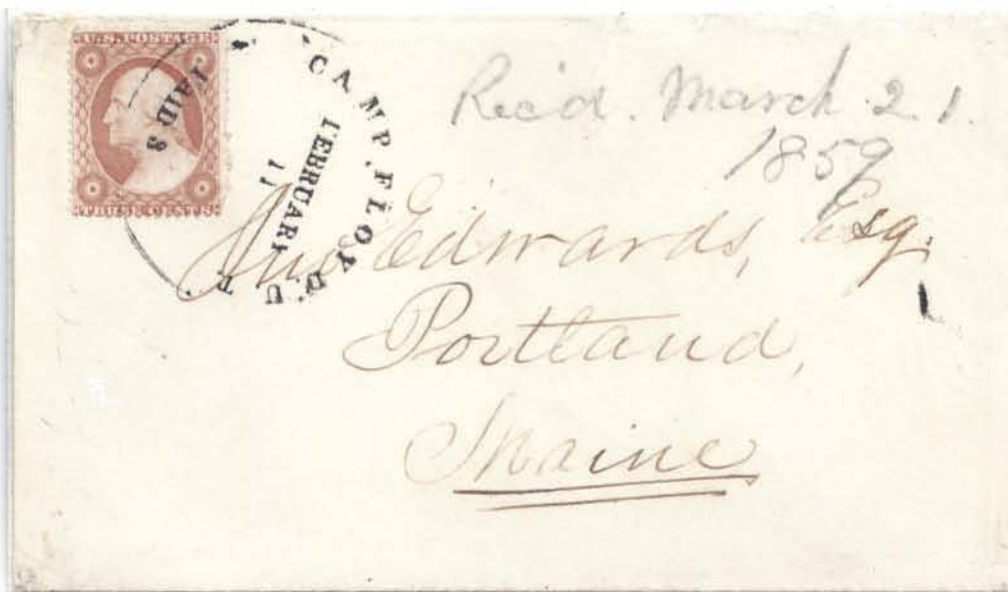 U.S. POSTAGE
THREE CENTS
PAID 3
CAMP. FLOYD. U T.
FEBRUARY
11
Rec'd. March 21.
1859
Jno Edwards, Esq.
Portland,
Maine